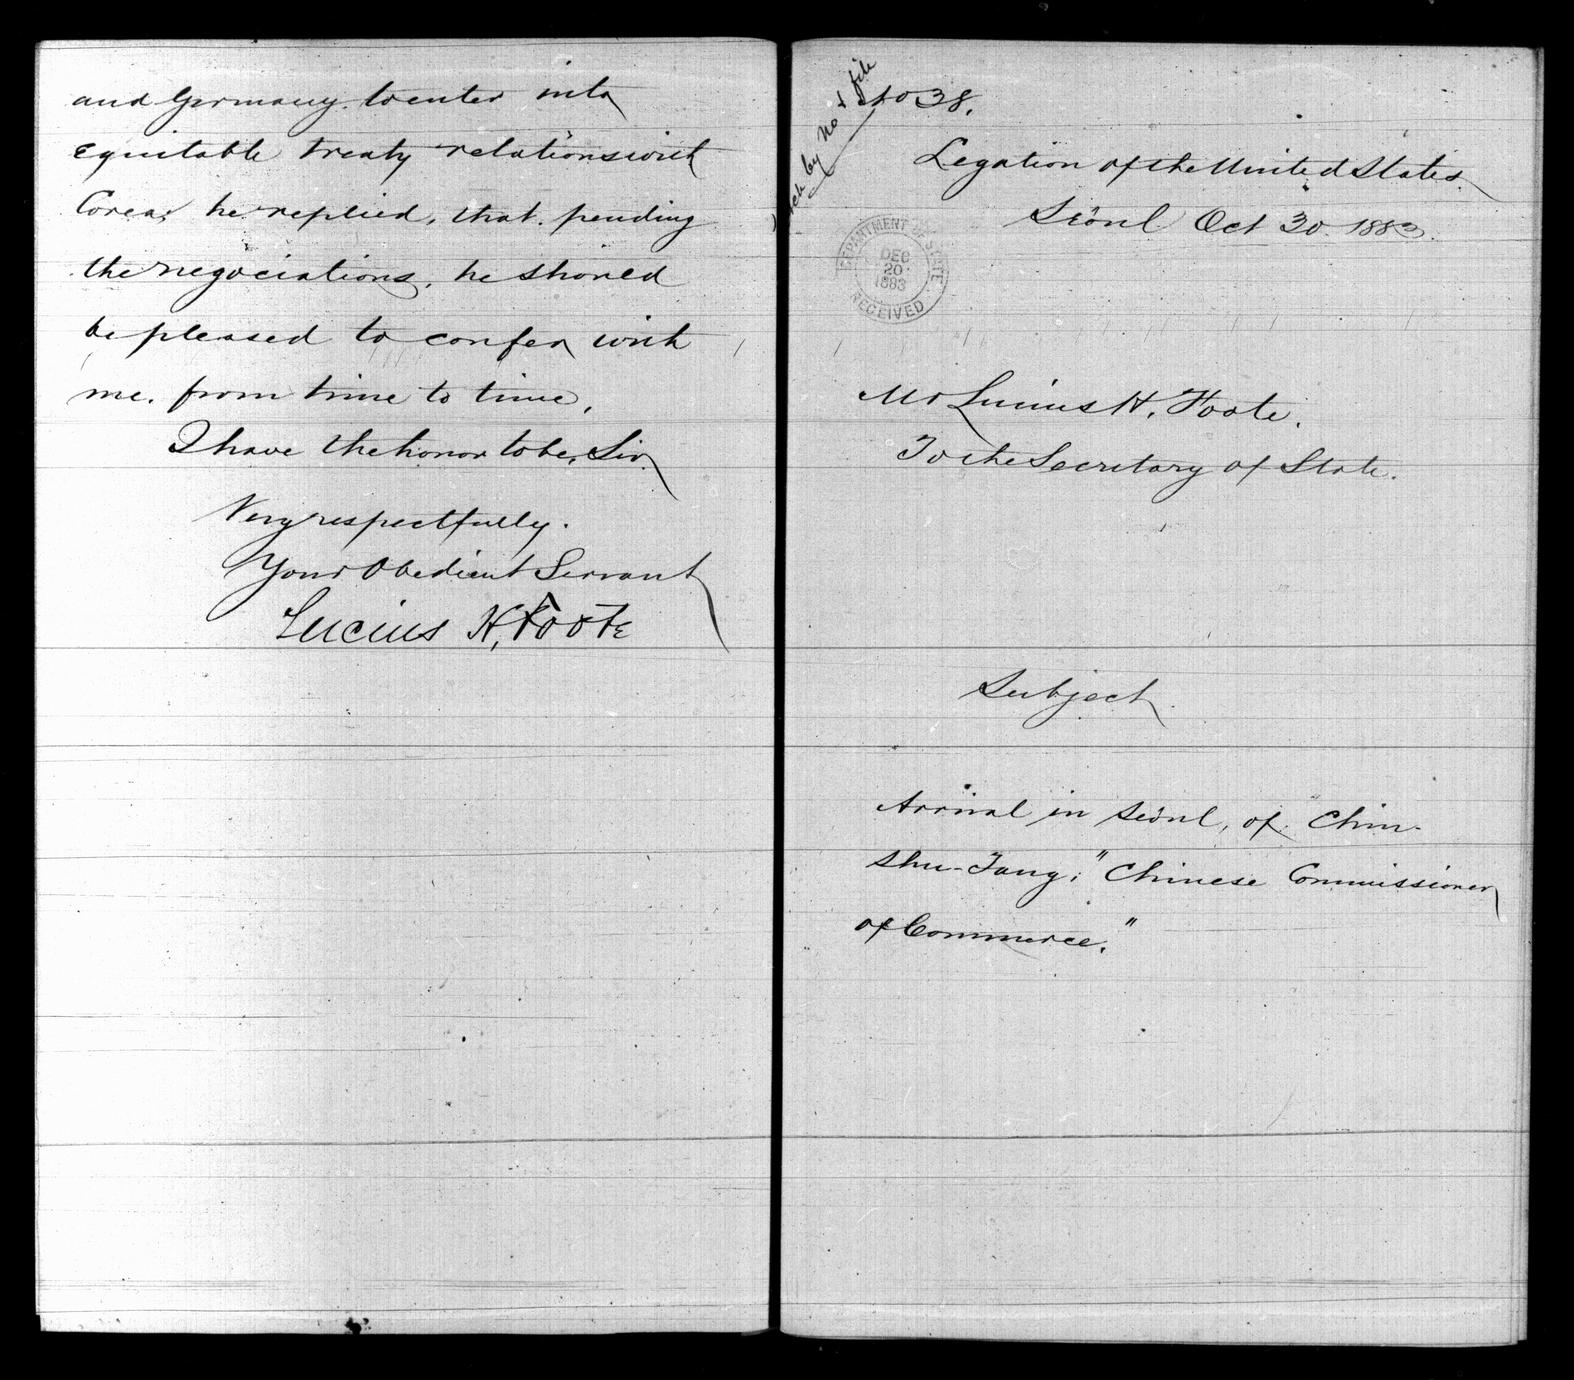 and Germany to enter into
equitable treaty relations with
Corea; he replied, that pending
the negociations, he should
be pleased to confer with
me. from time to time.
I have the honor to be, Sir,
Very respectfully.
Your Obedient Servant
Lucius H. Foote
by No & file
No 38.
Legation of the United States.
Sëoul Oct 30. 1883.
DEPARTMENT OF STATE
DEC
20
1883
RECEIVED
Mr Lucius H. Foote.
To the Secretary of State.
Subject.
Arrival in Sëoul, of Chin-
Shu-Tang; "Chinese Commissioner
of Commerce."